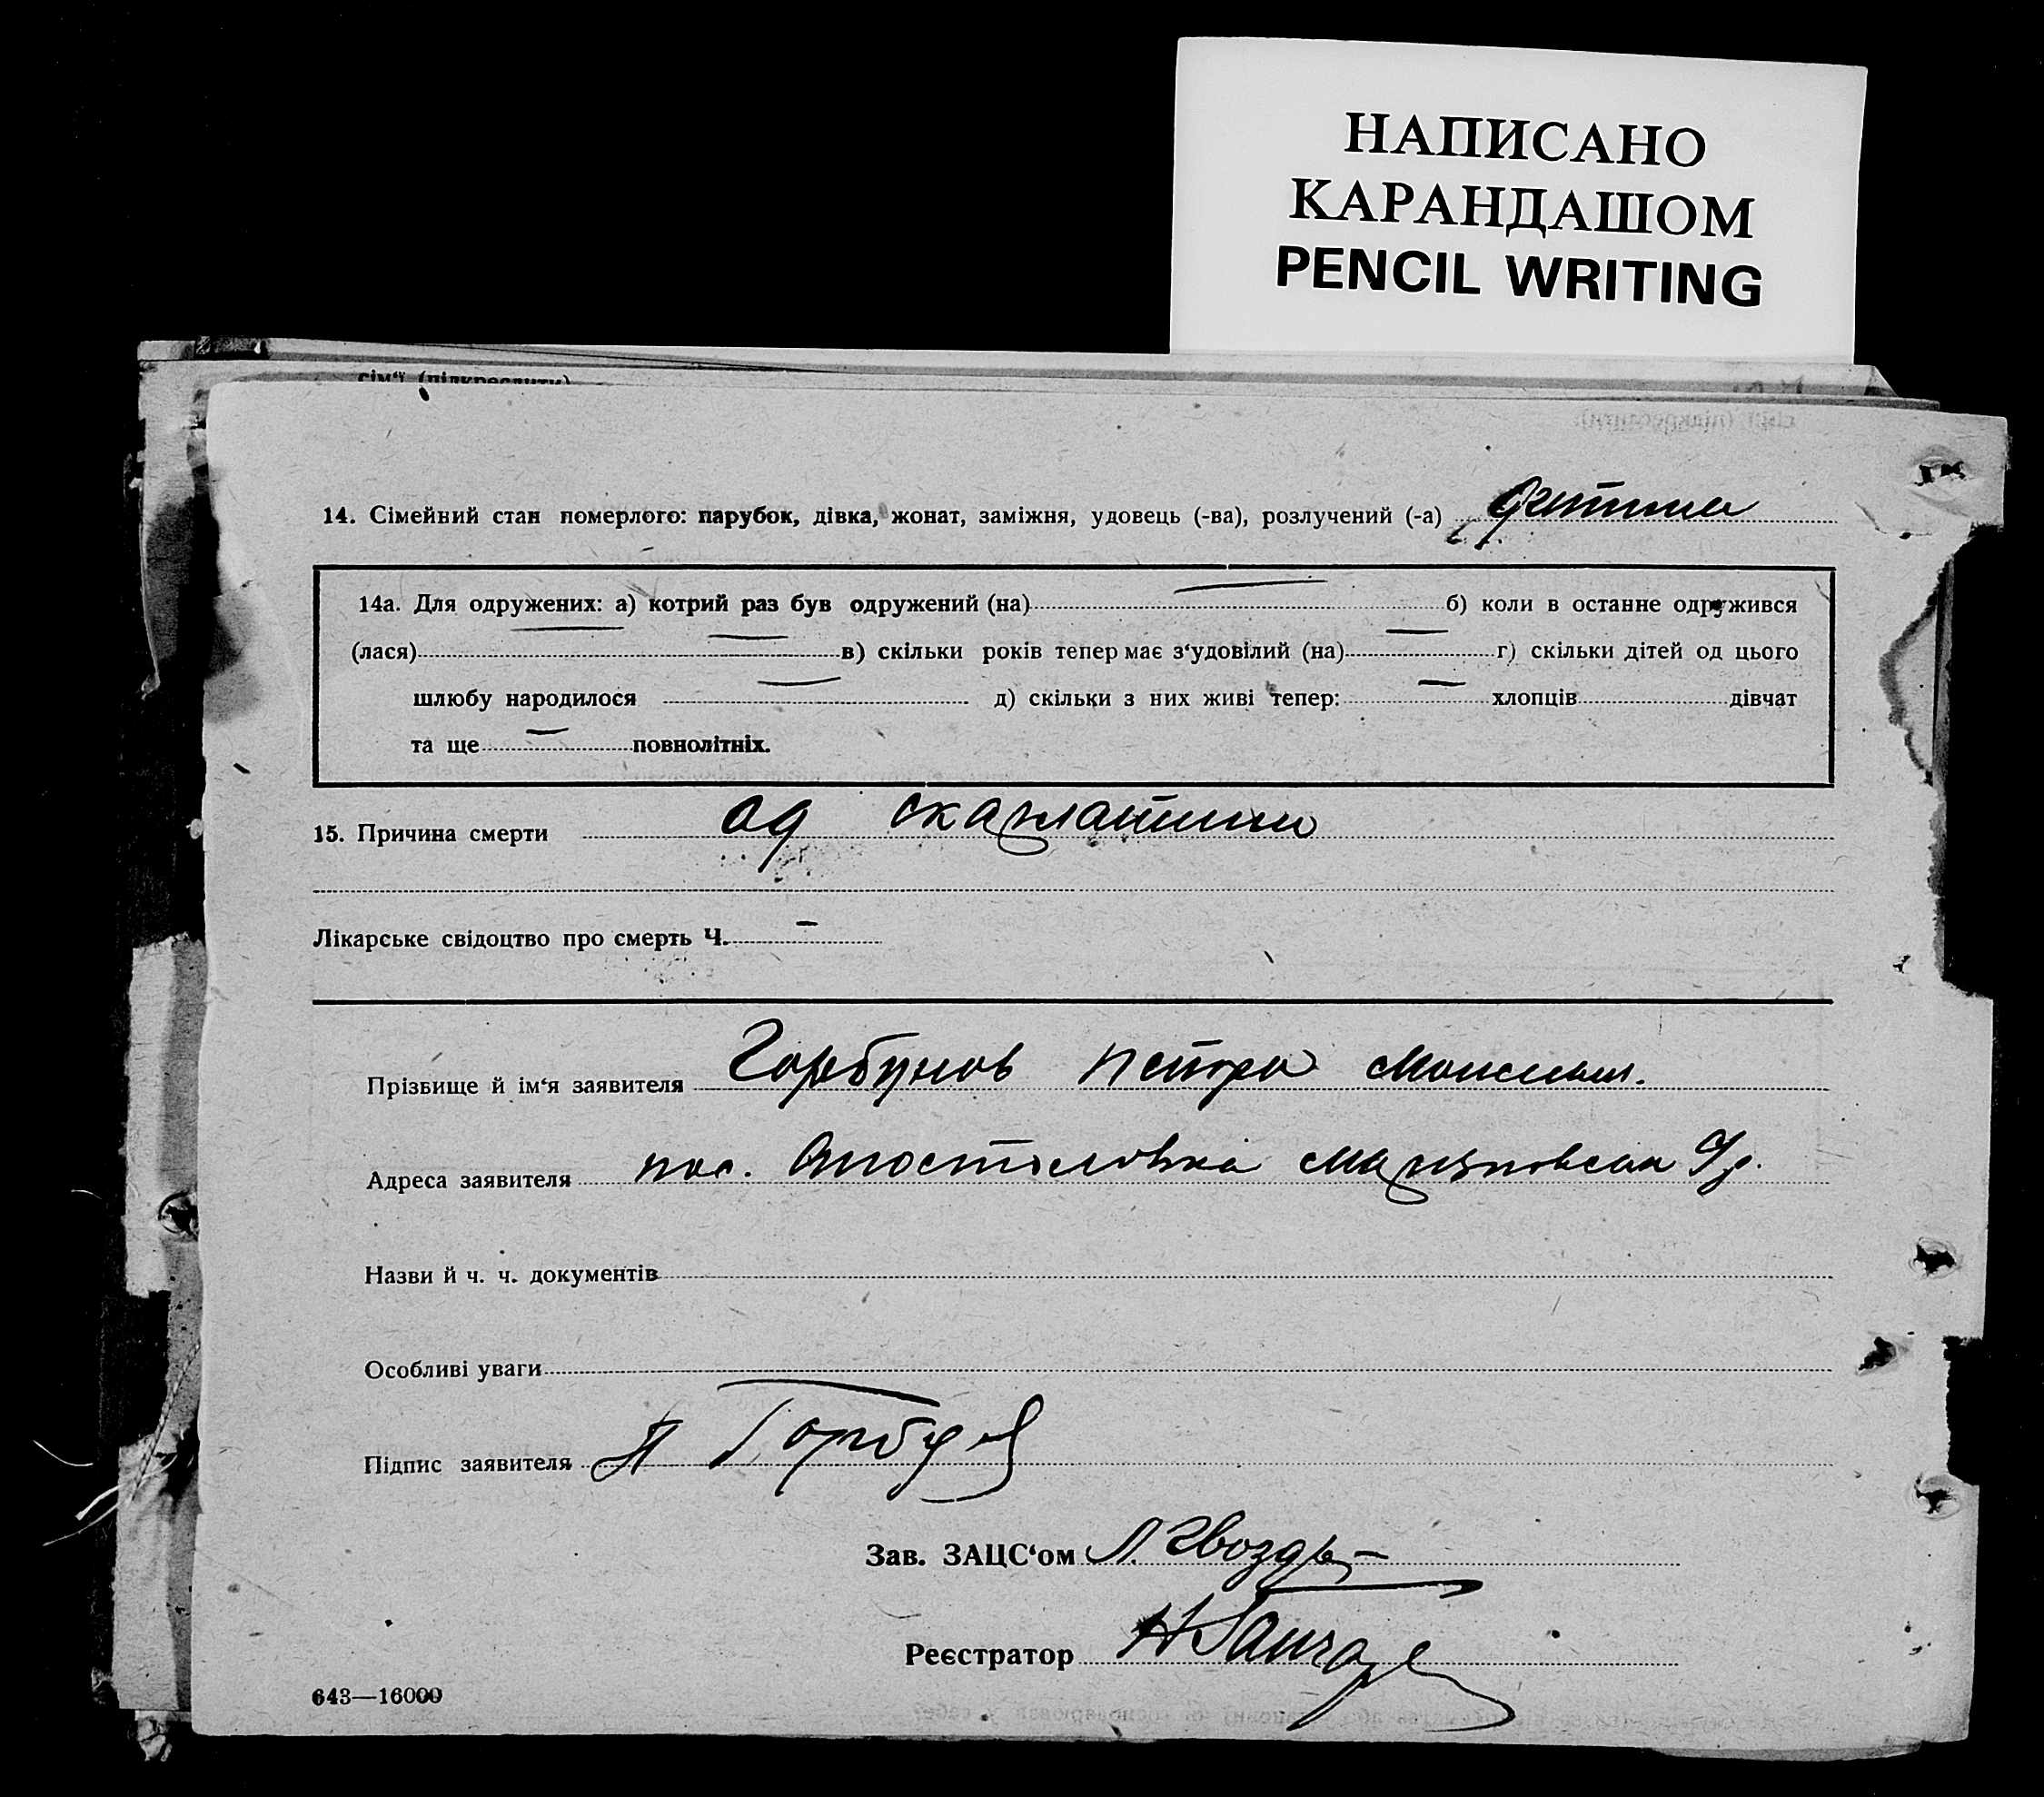 НАПИСАНО
КАРАНДАШОМ
PENCIL WRITING
сім'ї (підкреслити)
14. Сімейний стан померлого: парубок, дівка, жонат, заміжня, удовець (-ва), розлучений (-а) дитина
14а. Для одружених: а) котрий раз був одружений (на) — б) коли в останне одружився
(лася) — в) скільки років тепер має з'удовілий (на) — г) скільки дітей од цього
шлюбу народилося — д) скільки з них живі тепер: — хлопців дівчат
та ще — повнолітніх.
15. Причина смерти од скарлатини
Лікарське свідоцтво про смерть Ч. —
Прізвище й ім'я заявителя Горбунов Петро
Адреса заявителя пос. Апостоловка
Назви й ч. ч. документів
Особливі уваги
Підпис заявителя П Горбунов
Зав. ЗАЦС'ом
Реєстратор
643—16000